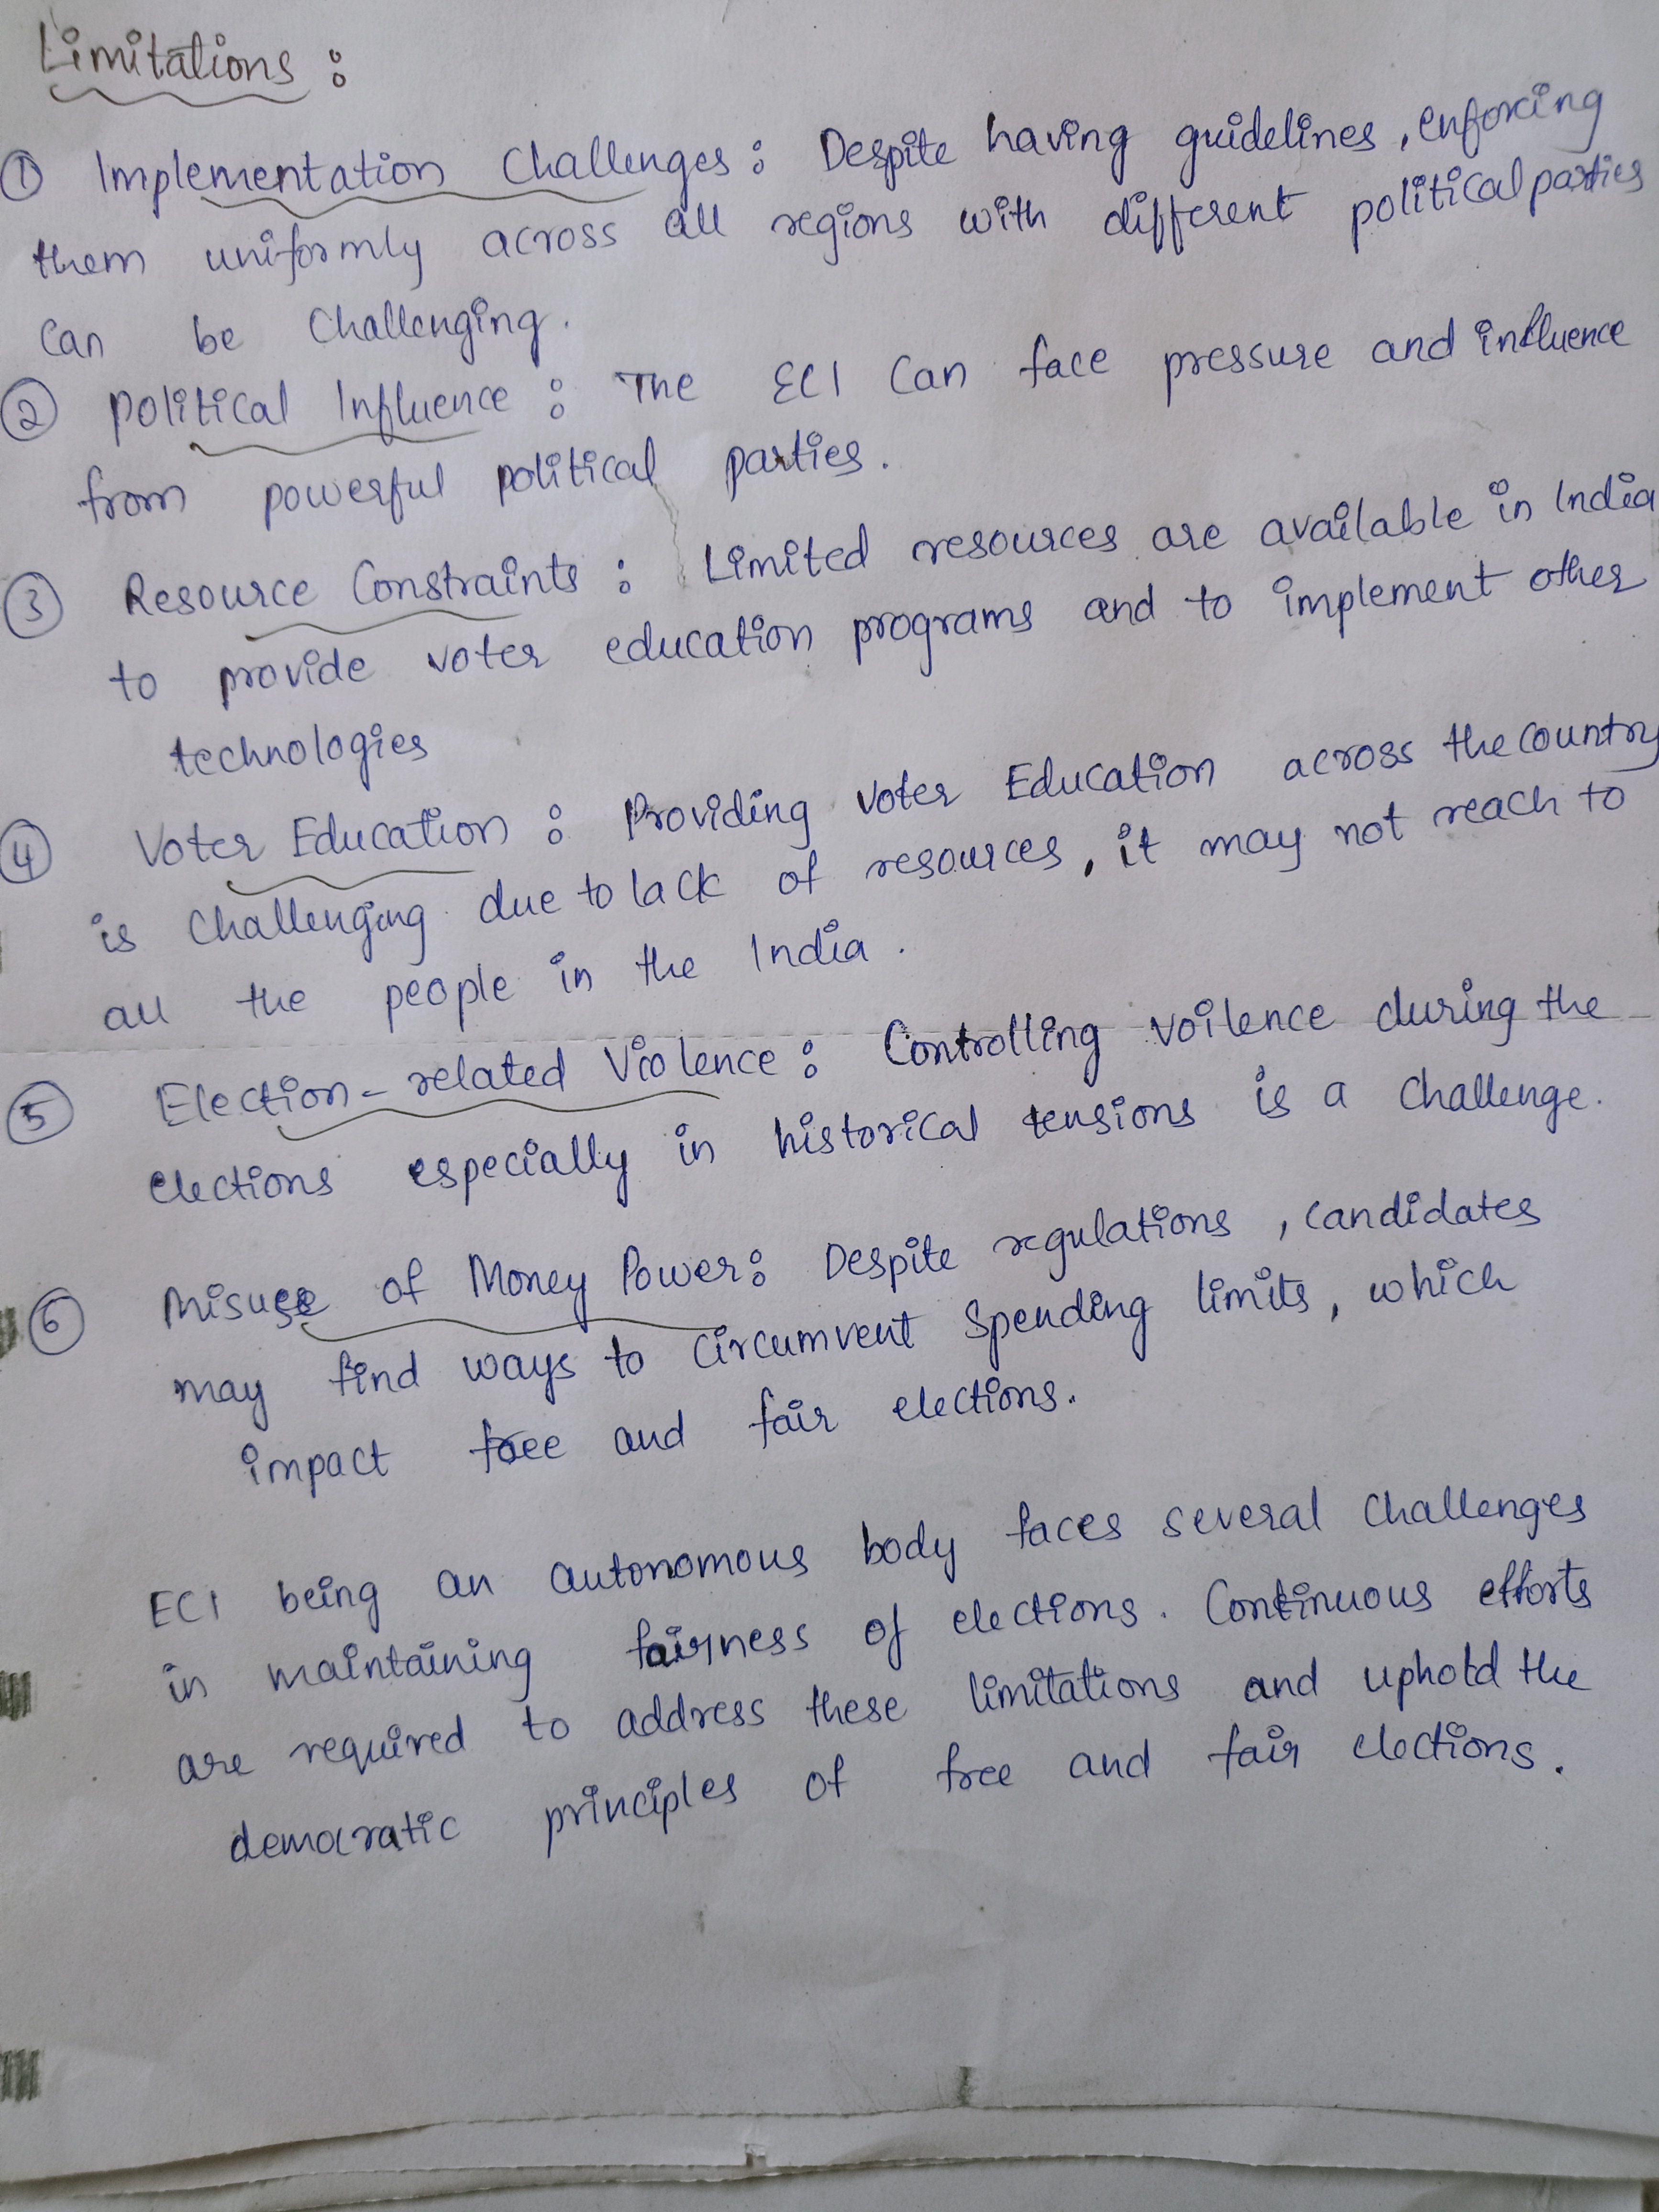 Limitations :
① Implementation Challenges : Despite having guidelines, enforcing
them uniformly across all regions with different political parties
can be challenging.
② Political Influence : The ECI can face pressure and influence
from powerful political parties.
③ Resource Constraints : Limited resources are available in India
to provide voter education programs and to implement other
technologies
④ Voter Education : Providing Voter Education across the country
is challenging due to lack of resources, it may not reach to
all the people in the India.
⑤ Election-related Violence : Controlling voilence during the
elections especially in historical tensions is a challenge.
⑥ Misuse of Money Power : Despite regulations, candidates
may find ways to circumvent spending limits, which
impact free and fair elections.
ECI being an autonomous body faces several challenges
in maintaining fairness of elections. Continuous efforts
are required to address these limitations and uphold the
democratic principles of free and fair elections.